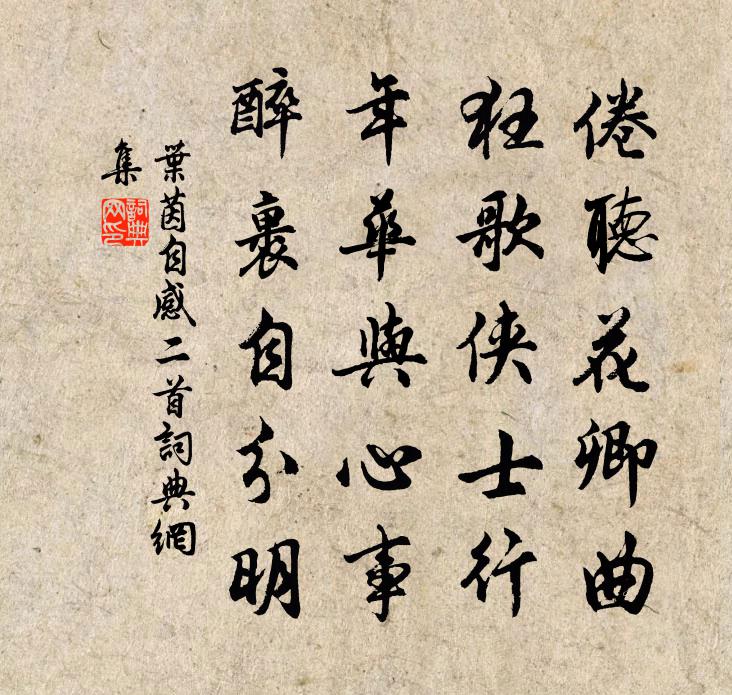 倦聽花卿曲
狂歌俠士行
年華與心事
醉裏自分明
葉茵自感二首詞典網
集
詞典
网印